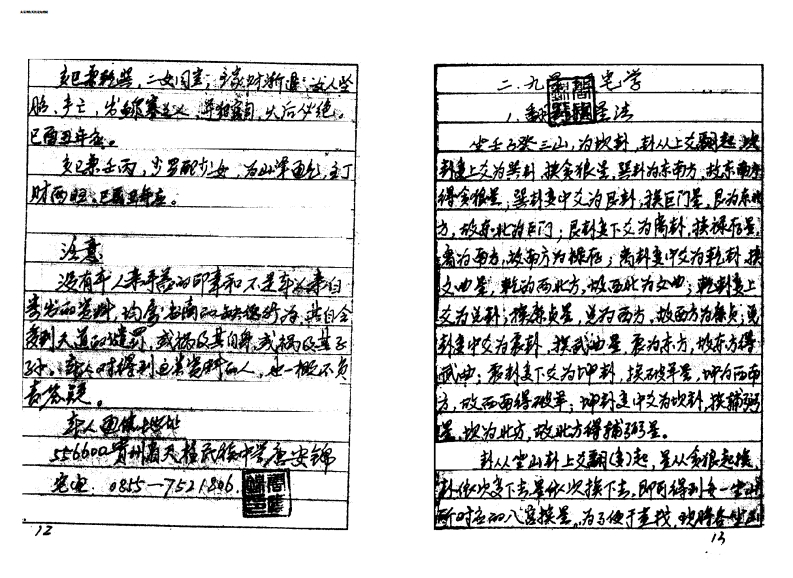 亥巳兼乾巽，二女同室；主家财渐退；故人坐
巳酉丑年应。
亥巳兼壬丙，少男配少女，为山泽通气，主丁
财两旺，巳酉丑年应。
注意
没有本人亲手盖的印章和不是本人亲自
寄发的资料，均属
受到天道的谴罚，或祸及其自身，或祸及其子
孙。本人对得到这类资料的人，也一概不负
责答疑。
本人通信地址
556600贵州省天柱民族中学唐安锦
宅电：0855—7521806
12
二、九星 宅学
1、翻 星法
坐壬子癸三山，为坎卦，卦从上爻翻起，坎
卦变上爻为巽卦，挨贪狼星，巽卦为东南方，故东南方
得贪狼星；巽卦变中爻为艮卦，挨巨门星，艮为东北
方，故东北为巨门；艮卦变下爻为离卦，挨禄存星，
离为南方，故南方为禄存；离卦变中爻为乾卦，挨
文曲星，乾为西北方，故西北为文曲；乾卦变上
爻为兑卦；挨廉贞星，兑为西方，故西方为廉贞；兑
卦变中爻为震卦，挨武曲星，震为东方，故东方得
武曲；震卦变下爻为坤卦，挨破军星，坤为西南
方，故西南得破军；坤卦变中爻为坎卦，挨辅弼
星，坎为北方，故北方得辅弼星。
卦从坐山卦上爻翻(变)起，星从贪狼起挨，
卦依次变下去，星依次挨下去，即可得到每一坐山
所对应的八宫挨星。为了便于查找，现将各坐山
13